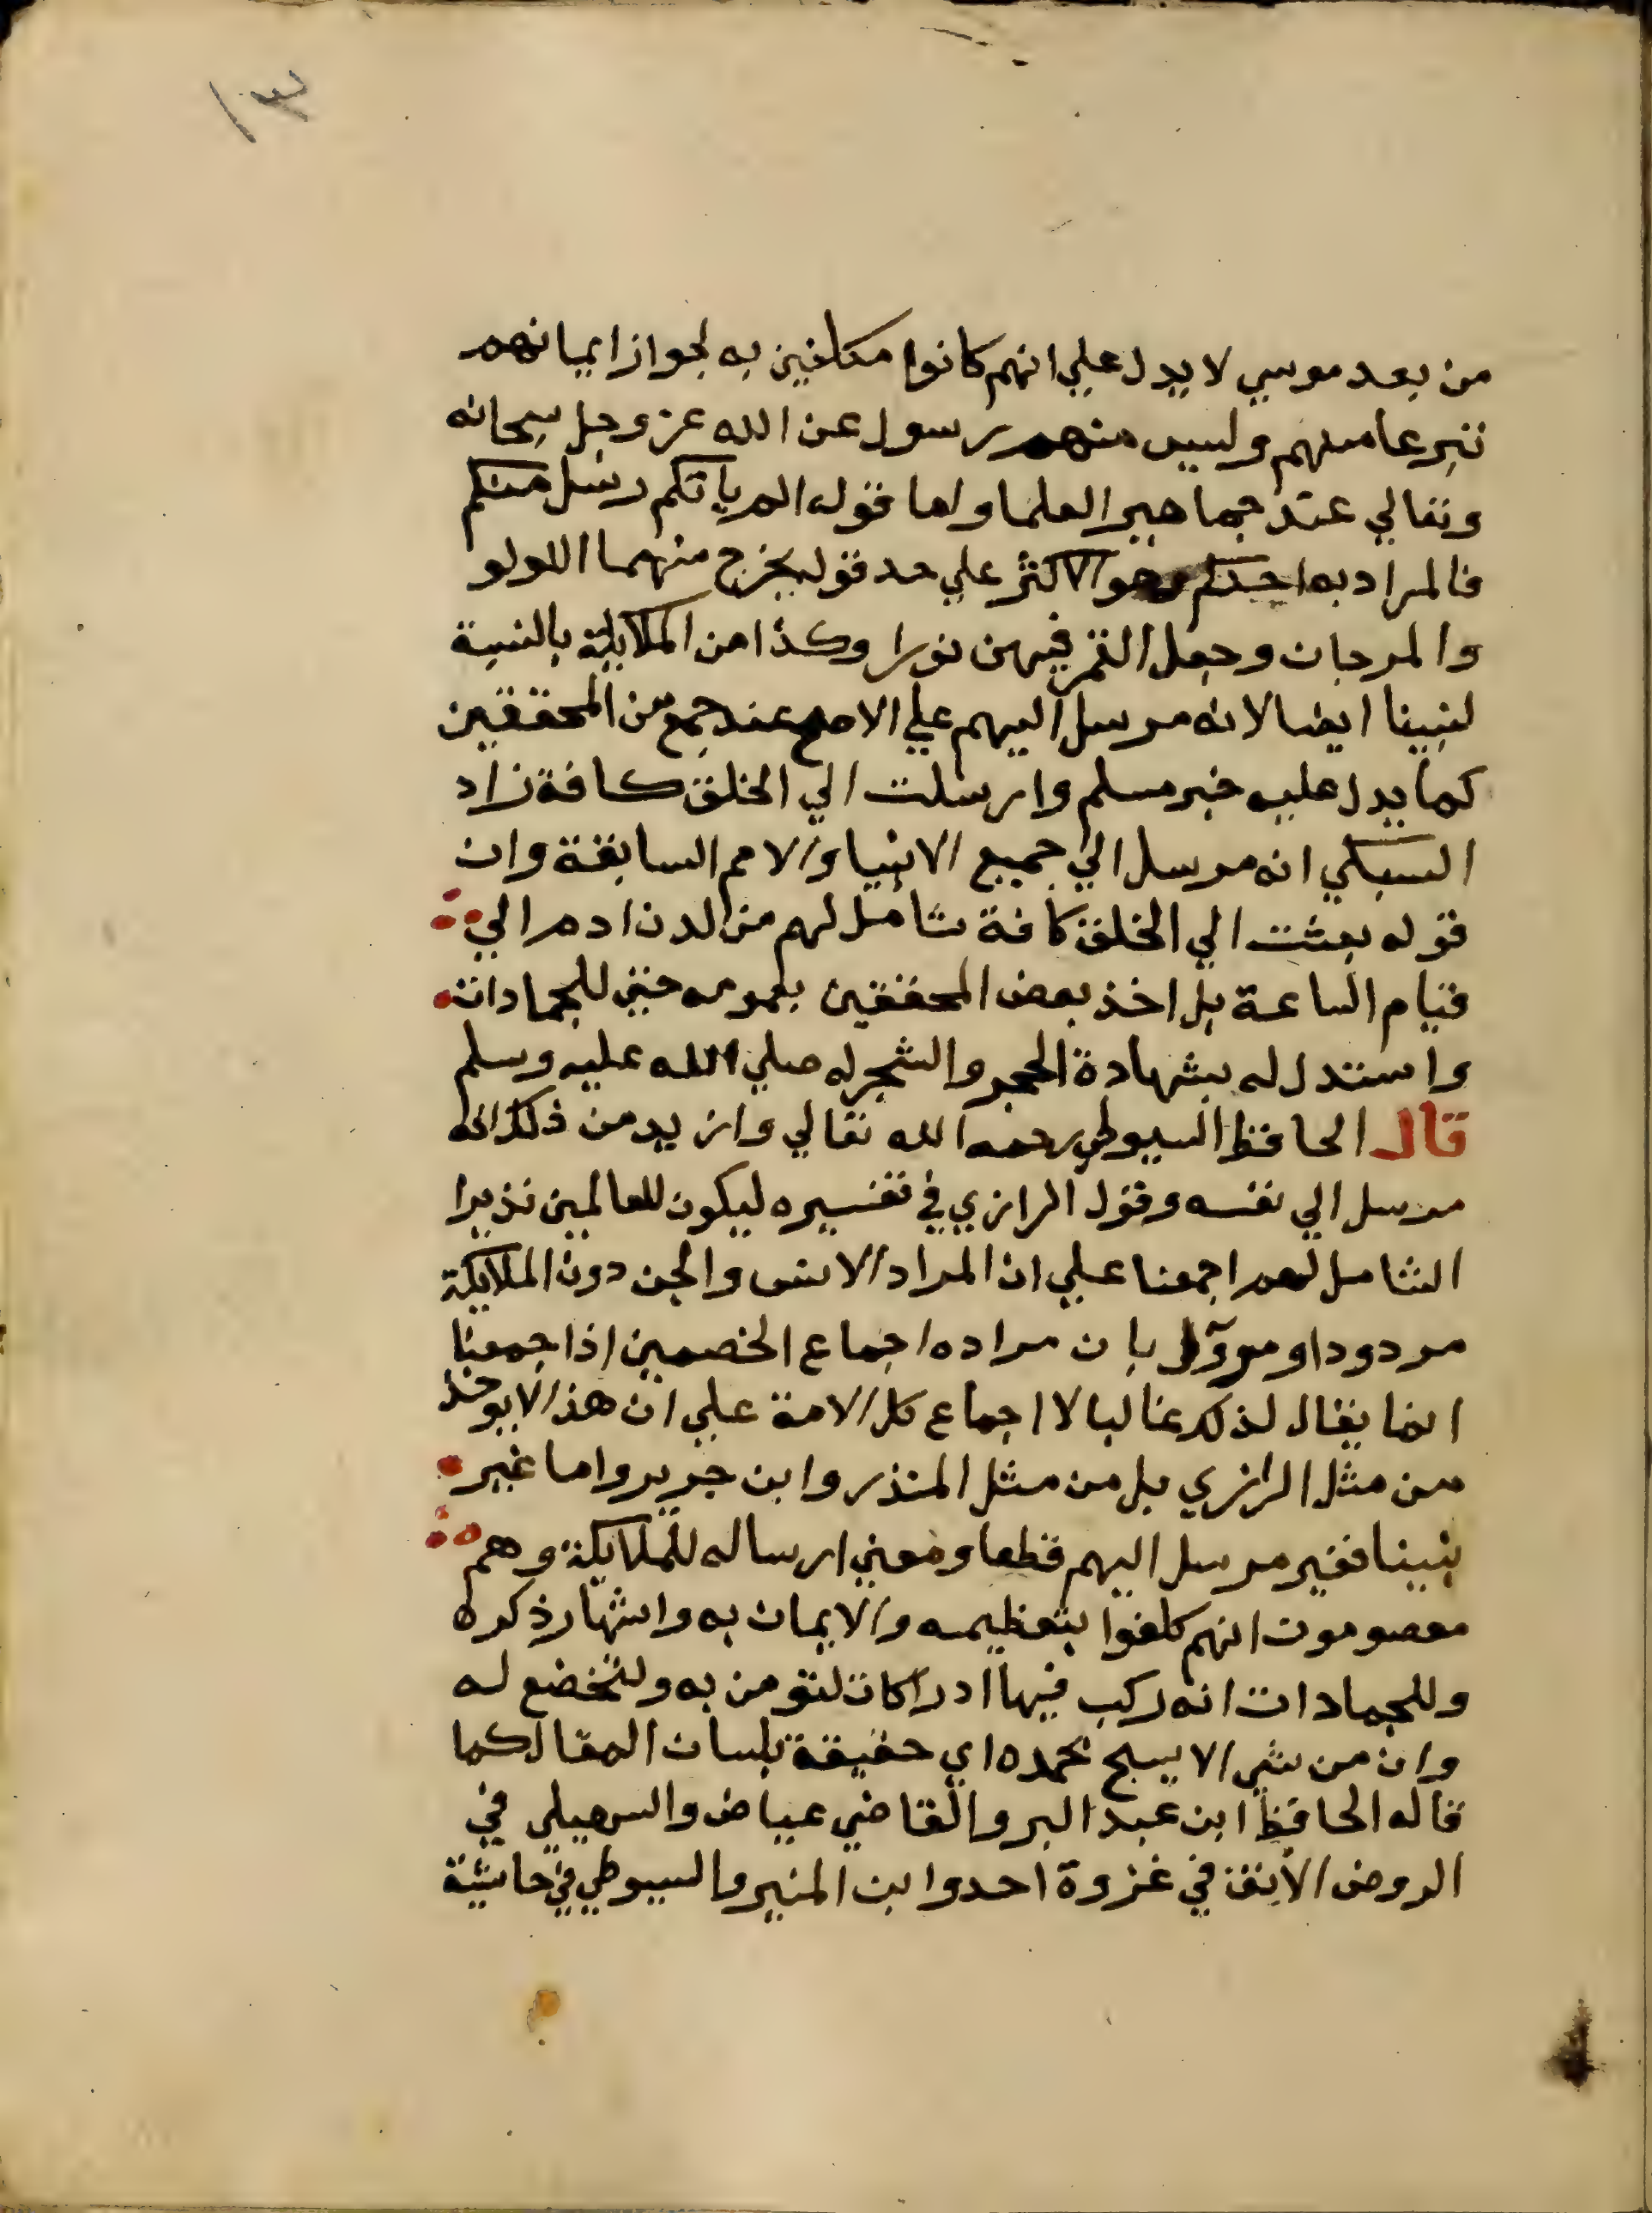 ١٣
من بعد موسي لا يدل علي انهم كانوا مكلفين به لجواز ايمانهم
تبرعا منهم وليس منهم رسول عن الله عز وجل سبحانه
وتعالي عند جماهير العلما واما قوله الم ياتكم رسل منكم
فالمراد به احدكم وهو الاكثر علي حد قوله يخرج منهما اللولو
والمرجان وجعل القمر فيهن نورا وكذا من الملايكة بالنسبة
لنبينا ايضا لانه مرسل اليهم علي الاصح عند جمع من المحققين
كما يدل عليه خبر مسلم وارسلت الي الخلق كافة زاد
السبكي انه مرسل الي جميع الانبياء والامم السابقة وان
قوله بعثت الي الخلق كافة شامل لهم من لدن ادم الي
قيام الساعة بل اخذ بعض المحققين بعمومه حتي للجمادات
واستدل له بشهادة الحجر والشجر له صلي الله عليه وسلم
قال الحافظ السيوطي رحمه الله تعالي وازيد من ذلك انه
مرسل الي نفسه وقول الرازي في تفسيره ليكون للعالمين نذيرا
الشامل لهم اجمعنا علي ان المراد الانس والجن دون الملايكة
مردود او موؤل بان مراده اجماع الخصمين اذ اجمعنا
انما يقال لذلك غالبا لا اجماع كل الامة علي ان هذا لا يوخذ
من مثل الرازي بل من مثل المنذر وابن جرير واما غير
نبينا فغير مرسل اليهم قطعا ومعني ارساله للملايكة وهم
معصومون انهم كلفوا بتعظيمه والايمان به واشتهار ذكره
وللجمادات انه ركب فيها ادراكات لتومن به ولتخضع له
وان من شي الا يسبح بحمده اي حقيقة بلسان المقال كما
قاله الحافظ ابن عبد البر والقاضي عياض والسهيلي في
الروض الانف في غزوة احد وابن المنير والسيوطي في حاشية